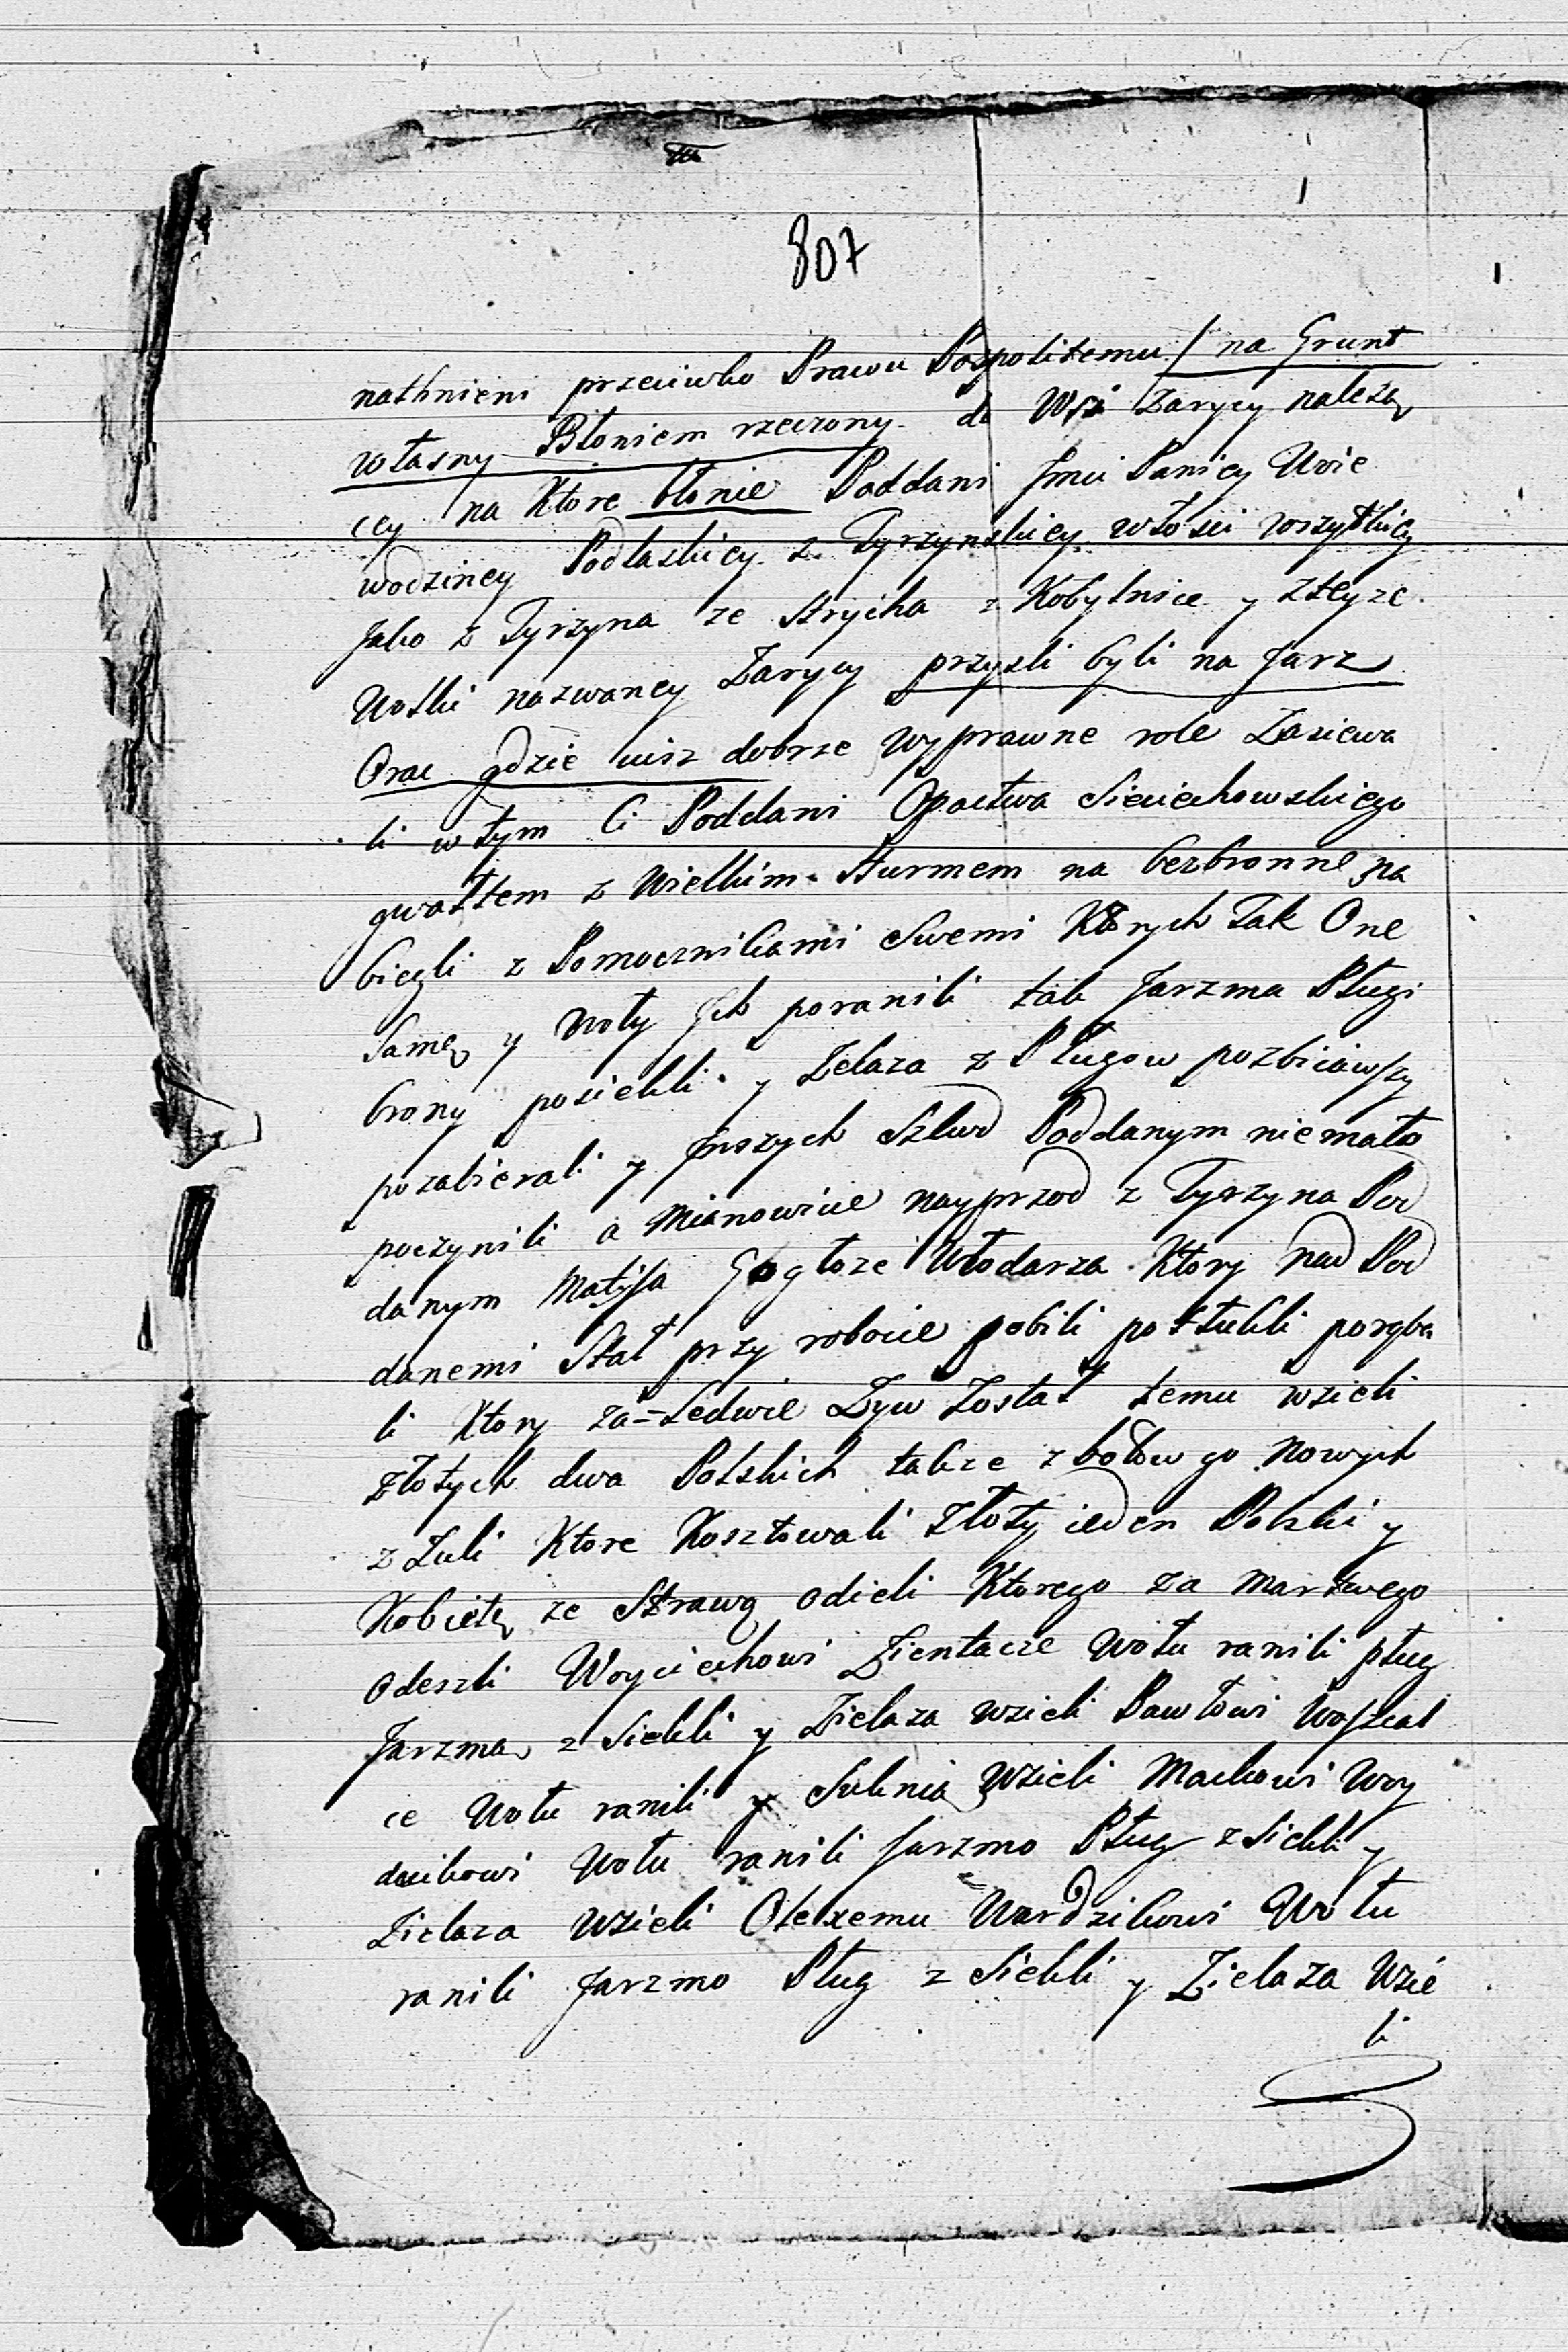 807
nathnieni przeciwko Prawu Pospolitemu / na Grunt
własny Błoniem rzeczony do Wsi Zarycy należą
cy na Ktore błonie Poddani Jmci Paniey Woie
wodziney Podlaskiey z Tyrzynskiey włosci wszystkiey
Jako z Tyrzyna ze Strycha z Kobylnice y zteyze
Woski nazwaney Zarycy przyszli byli na Jarz
Orac gdzie iusz dobrze wyprawne role Zasiewa
li w tym Ci Poddani Opactwa Sieciechowskiego
gwałtem z Wielkim Sturmem na bezbronne na
biegli z Pomocznikami Swemi Ktorych Tak One
Samę y Woły Jch poranili tak Jarzma Pługi
brony posiekli y Zelaza z Pługow pozbiiawszy
pozabierali y Jnszych Szkod Poddanym niemało
poczynili a Mianowicie nayprzod z Tyrzyna Pod
danym Matysa Gogłoze Włodarza Ktory nad Pod
danemi Stał przy robocie pobili potłukli porąba
li Ktory za=Ledwie Zyw Został temu wzieli
złotych dwa Polskich także z botow go nowych
z Zuli Ktore Kosztowali Złoty ieden Polski y
Kobiełę ze Strawą odieli Ktorego za martwego
odeszli Woyciechowi Zientacze Wołu ranili pług
Jarzma z Siekli y Zielaza wzieli Pawłowi
ce Wołu ranili y Suknią Wzieli Mackowi Woy
dzikowi Wołu ranili Jarzmo Pług z Siekli y
Zielaza Wzieli Olexemu Wardzikowi Wołu
ranili Jarzmo Pług z Siekli y Zielaza Wzie
li